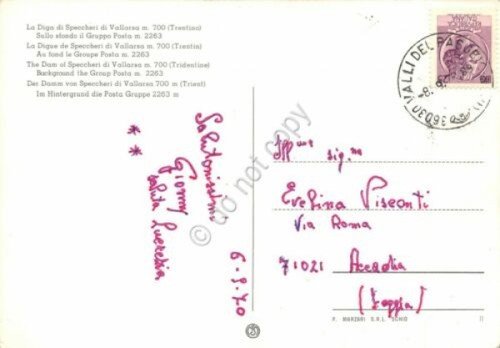 La Diga di Speccheri di Vallarsa m. 700 (Trentino)
Sullo sfondo il Gruppo Posta m. 2263
La Digue de Speccheri di Vallarsa m. 700 (Trentin)
Au fond le Groupe Posta m. 2263
The Dam of Speccheri di Vallarsa m. 700 (Tridentine)
Background the Group Posta m. 2263
Der Damm von Speccheri di Vallarsa 700 m (Trient)
Im Hintergrund die Posta Gruppe 2263 m
36030 VALLI DEL PASUBIO
Salutonissimi
Gionny
saluta Lucrezia
6-9-70
do not copy
Ill.ma sig.na
Evelina Visconti
Via Roma
71021 Accadia
(Foggia)
P. MARZARI S.R.L. SCHIO